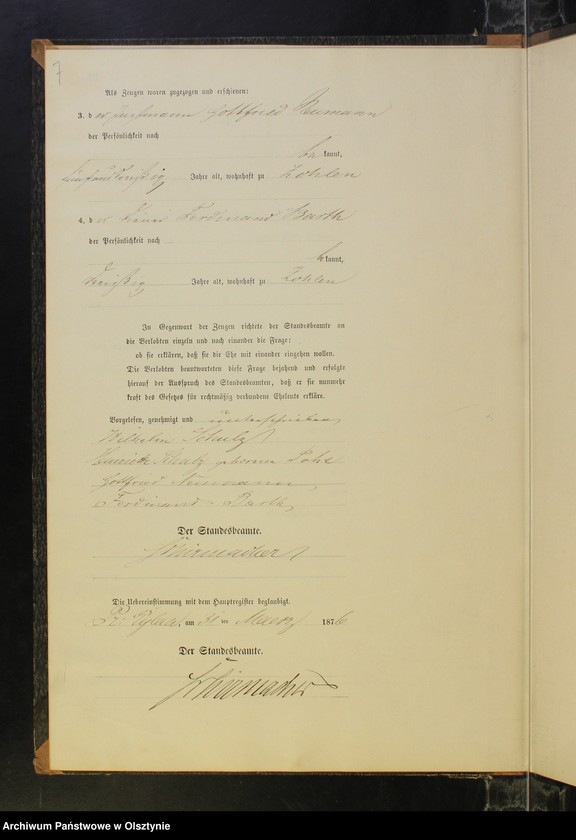 7
Als Zeugen waren zugezogen und erschienen:
3. d er Gottfried Neumann
der Persönlichkeit nach
be kannt,
fünfunddreißig Jahre alt, wohnhaft zu Zohlen
4. d er Ferdinand Barth
der Persönlichkeit nach
be kannt,
dreißig Jahre alt, wohnhaft zu Zohlen
In Gegenwart der Zeugen richtete der Standesbeamte an
die Verlobten einzeln und nach einander die Frage:
ob sie erklären, daß sie die Ehe mit einander eingehen wollen.
Die Verlobten beantworteten diese Frage bejahend und erfolgte
hierauf der Ausspruch des Standesbeamten, daß er sie nunmehr
kraft des Gesetzes für rechtmäßig verbundene Eheleute erkläre.
Vorgelesen, genehmigt und unterschrieben
Wilhelm Schulz
Schulz geborene
Gottfried Neumann
Ferdinand Barth
Der Standesbeamte.
Schirmacher
Die Uebereinstimmung mit dem Hauptregister beglaubigt.
Pr. Eylau, am 31 ten Maerz 1876
Der Standesbeamte.
Schirmacher
Archiwum Państwowe w Olsztynie